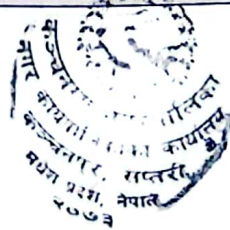 कञ्चनरूप नगरपालिका
नगर कार्यपालिकाको कार्यालय
कञ्चनपुर, सप्तरी
मधेश प्रदेश, नेपाल
२०७३